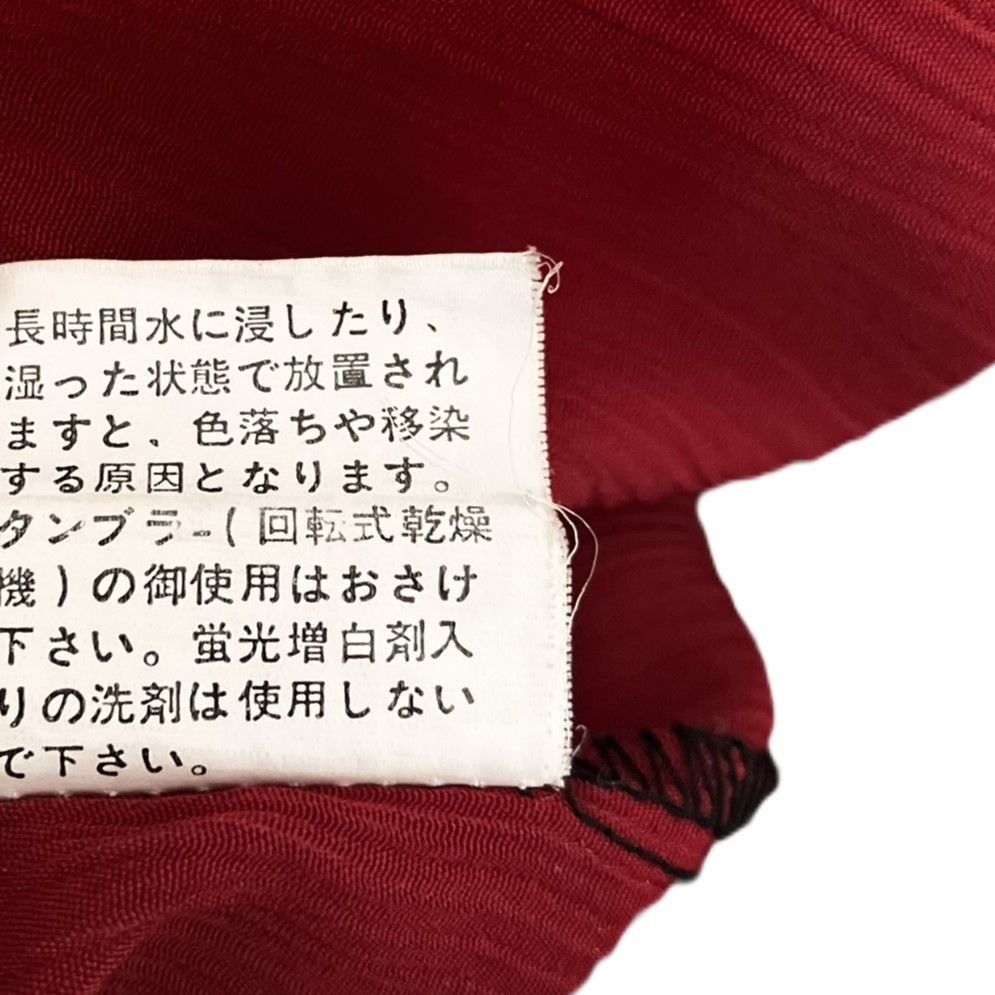 長時間水に浸したり、
湿った状態で放置され
ますと、色落ちや移染
する原因となります。
タンブラ-(回転式乾燥
機)の御使用はおさけ
下さい。蛍光増白剤入
りの洗剤は使用しない
で下さい。